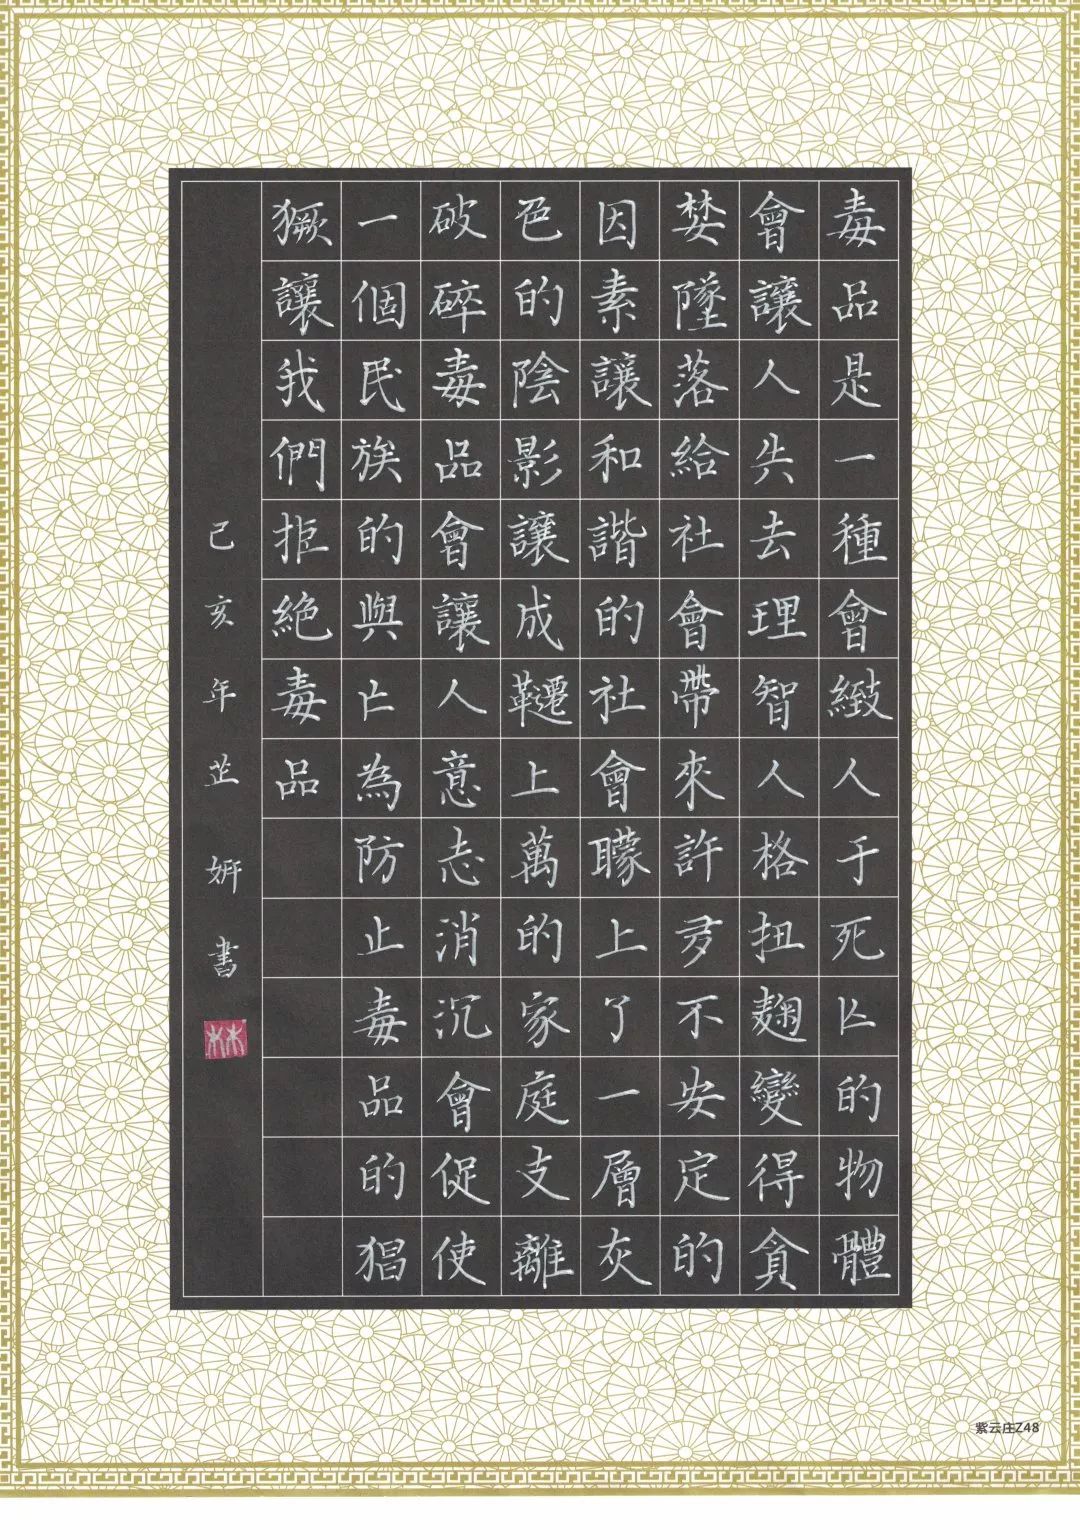 毒品是一種會緻人于死亡的物體
會讓人失去理智人格扭麹變得貪
婪墜落給社會帶來許多不安定的
因素讓和諧的社會矇上了一層灰
色的陰影讓成韆上萬的家庭支離
破碎毒品會讓人意志消沉會促使
一個民族的興亡為防止毒品的猖
獗讓我們拒絕毒品
己亥年芷妍書
林
紫云庄Z48